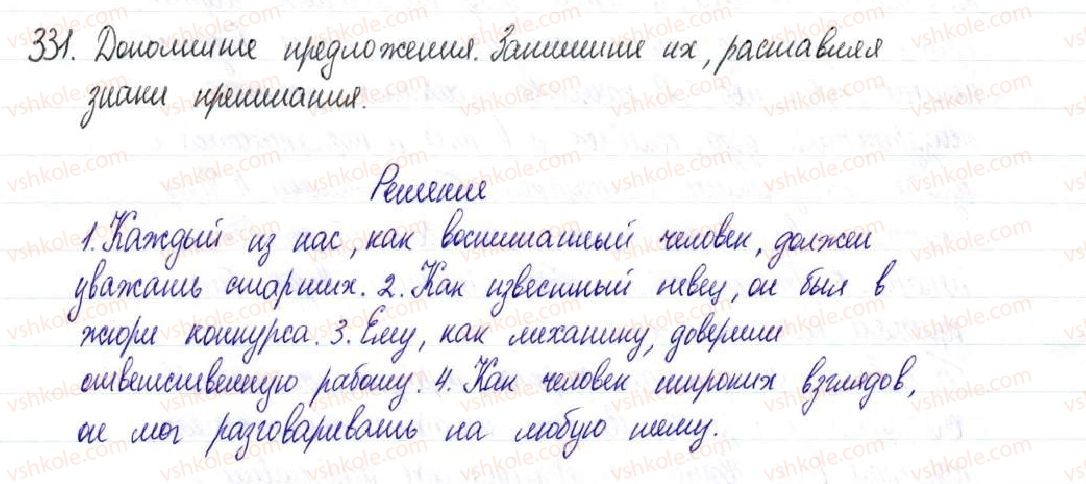 331. Дополните предложения. Запишите их, расставляя
знаки препинания.
Решение
1. Каждый из нас, как воспитанный человек, должен
уважать старших. 2. Как известный певец, он был в
жюри конкурса. 3. Ему, как механику, доверили
ответственную работу. 4. Как человек широких взглядов,
он мог разговаривать на любую тему.